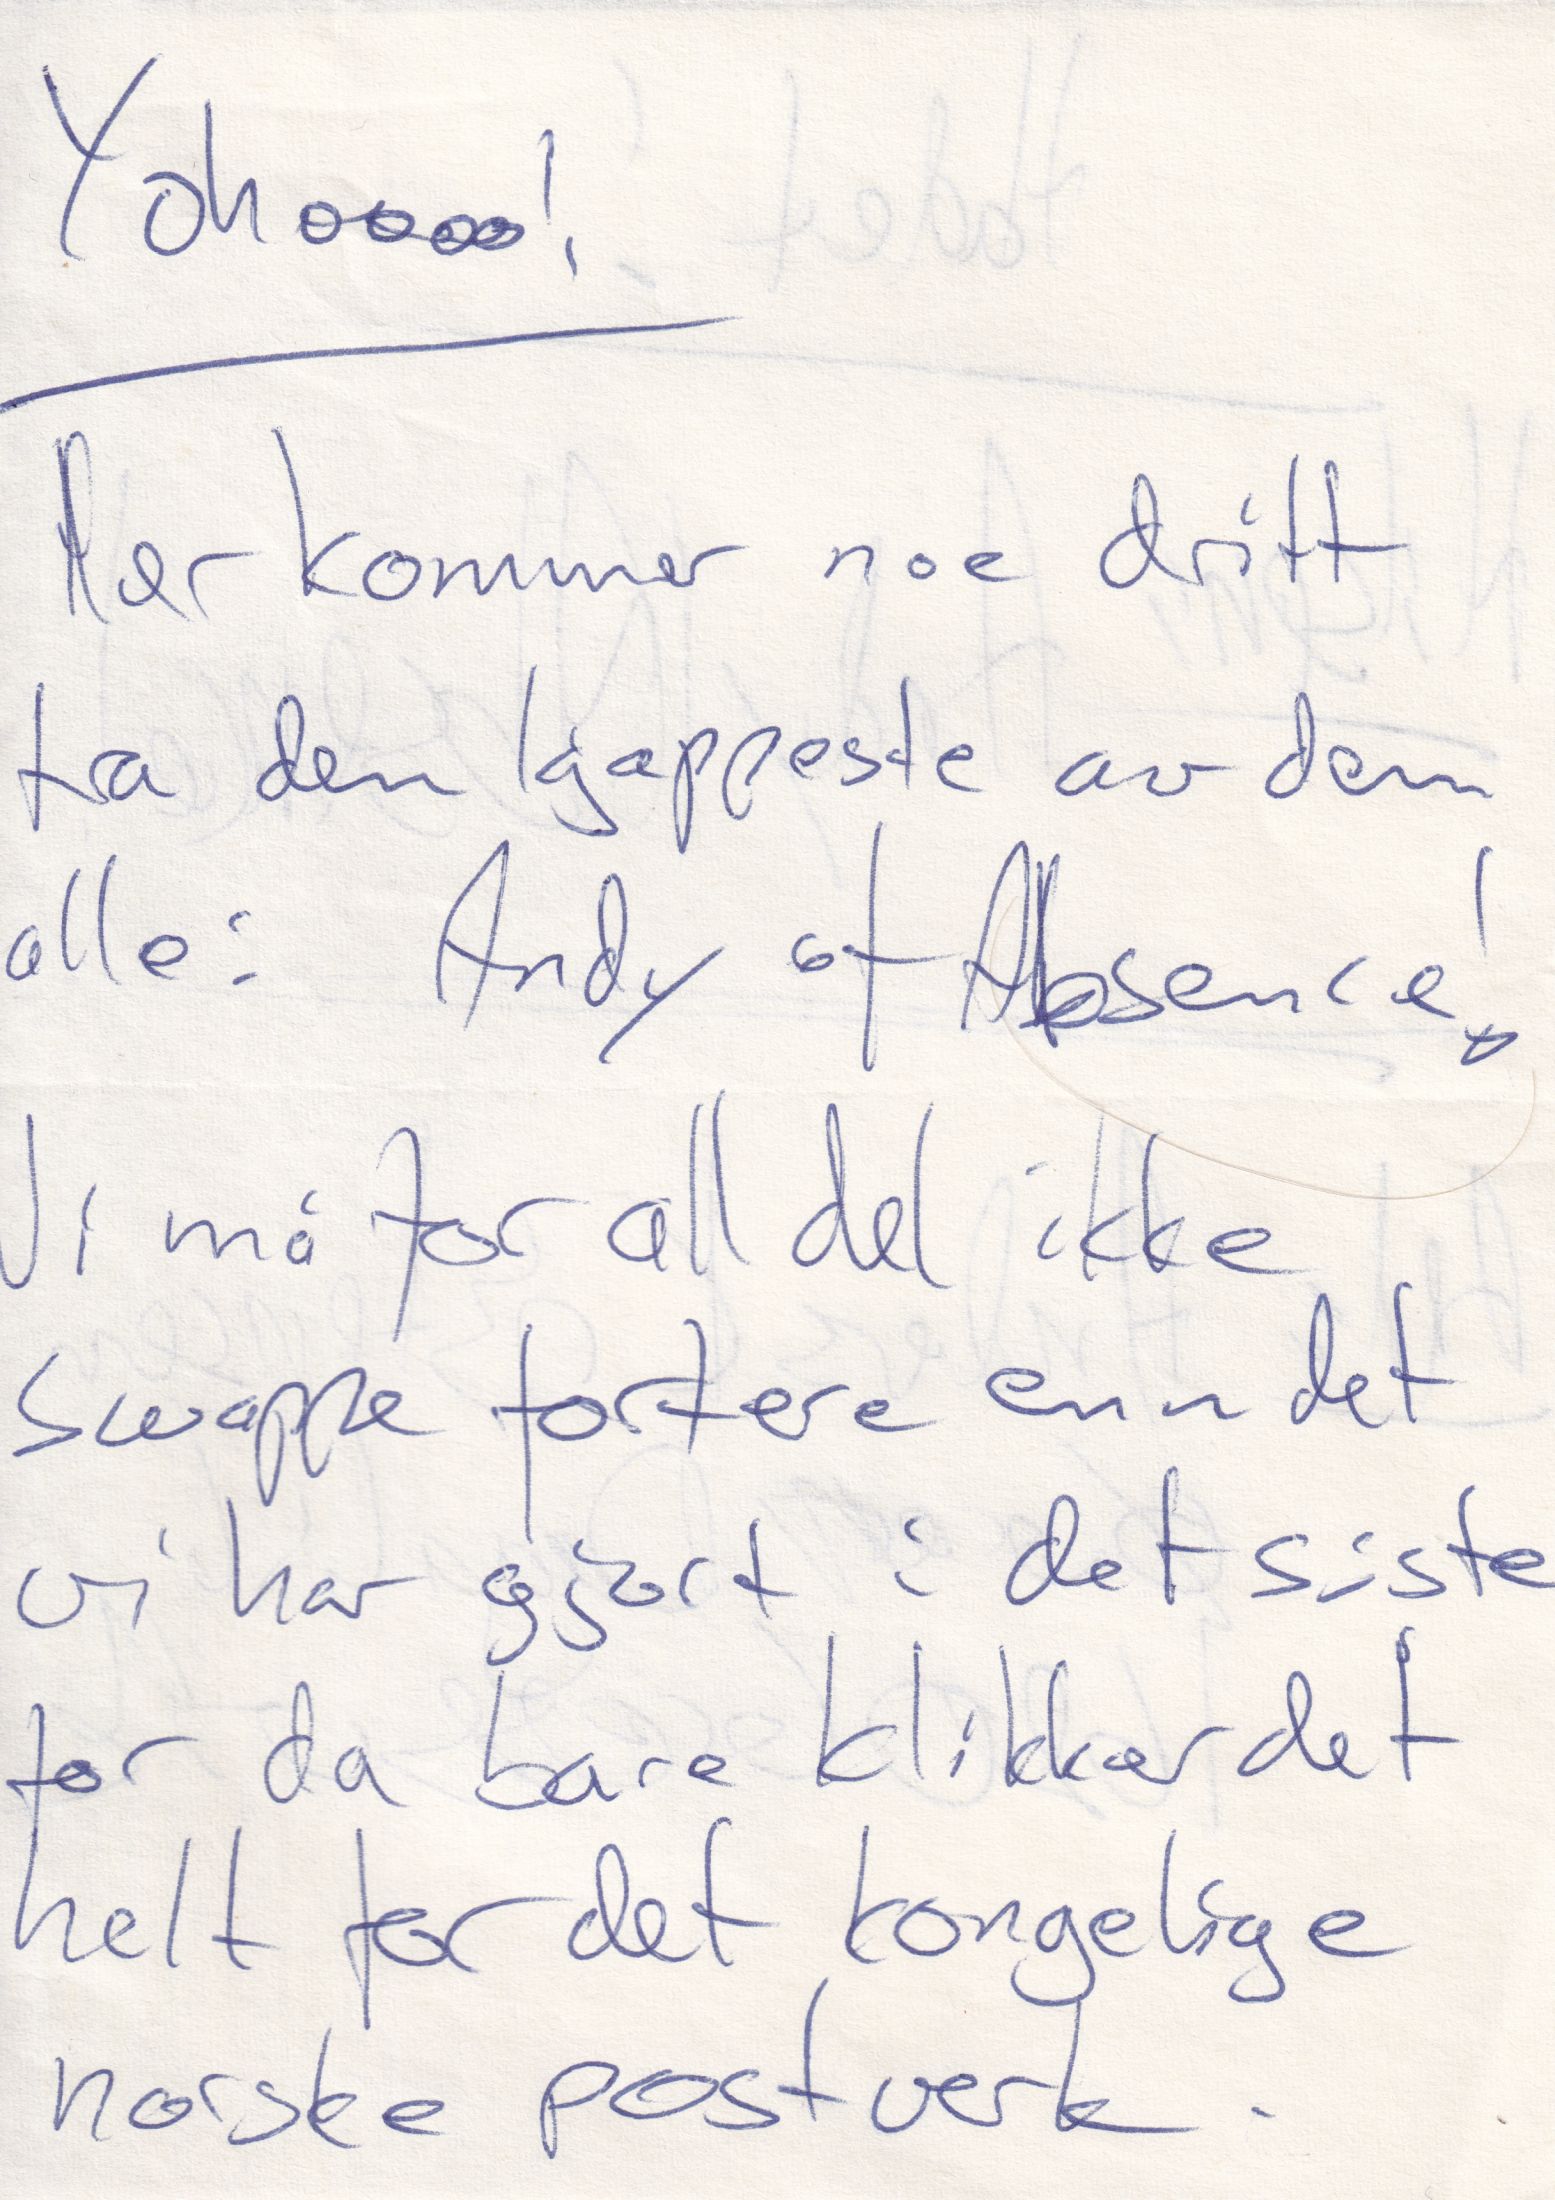 Yohoooo!
Her kommer noe dritt
fra den kjappeste av dem
alle: Andy of Absence!
Vi må for all del ikke
swappe fortere enn det
vi har gjort i det siste
for da bare klikker det
helt for det kongelige
norske postverk.